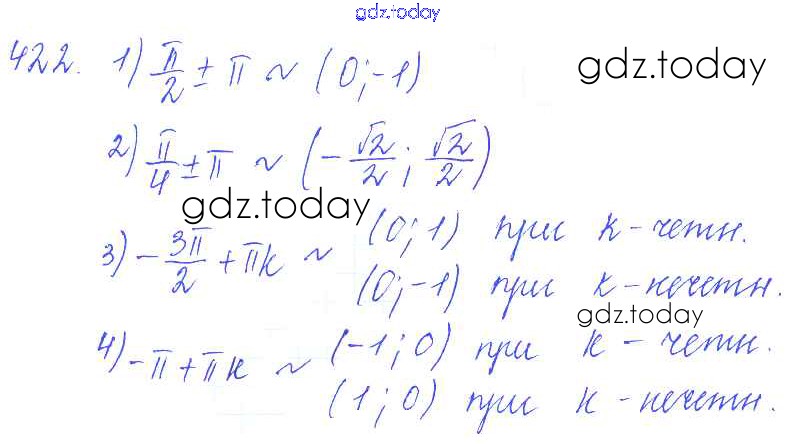 gdz.today
422. 1) π/2 ± π ~ (0; -1)
gdz.today
2) π/4 ± π ~ (-√2/2; √2/2)
gdz.today
3) -3π/2 + πk ~ (0; 1) при k - четн.
(0; -1) при k - нечетн.
gdz.today
4) -π + πk ~ (-1; 0) при k - четн.
(1; 0) при k - нечетн.